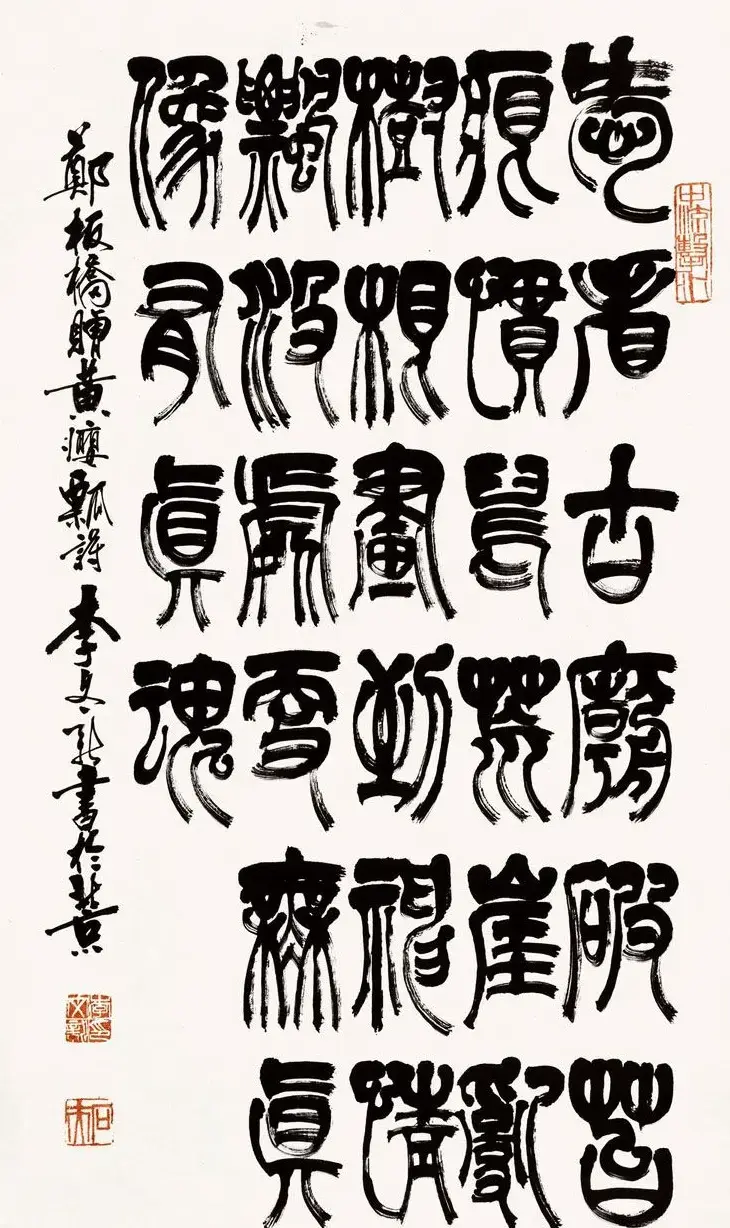 愛看古廟破苔
痕慣寫荒崖亂
樹根畫到神情
飄沒處更無真
像有真魂
鄭板橋贈黃癭瓢詩 李文 書於 京